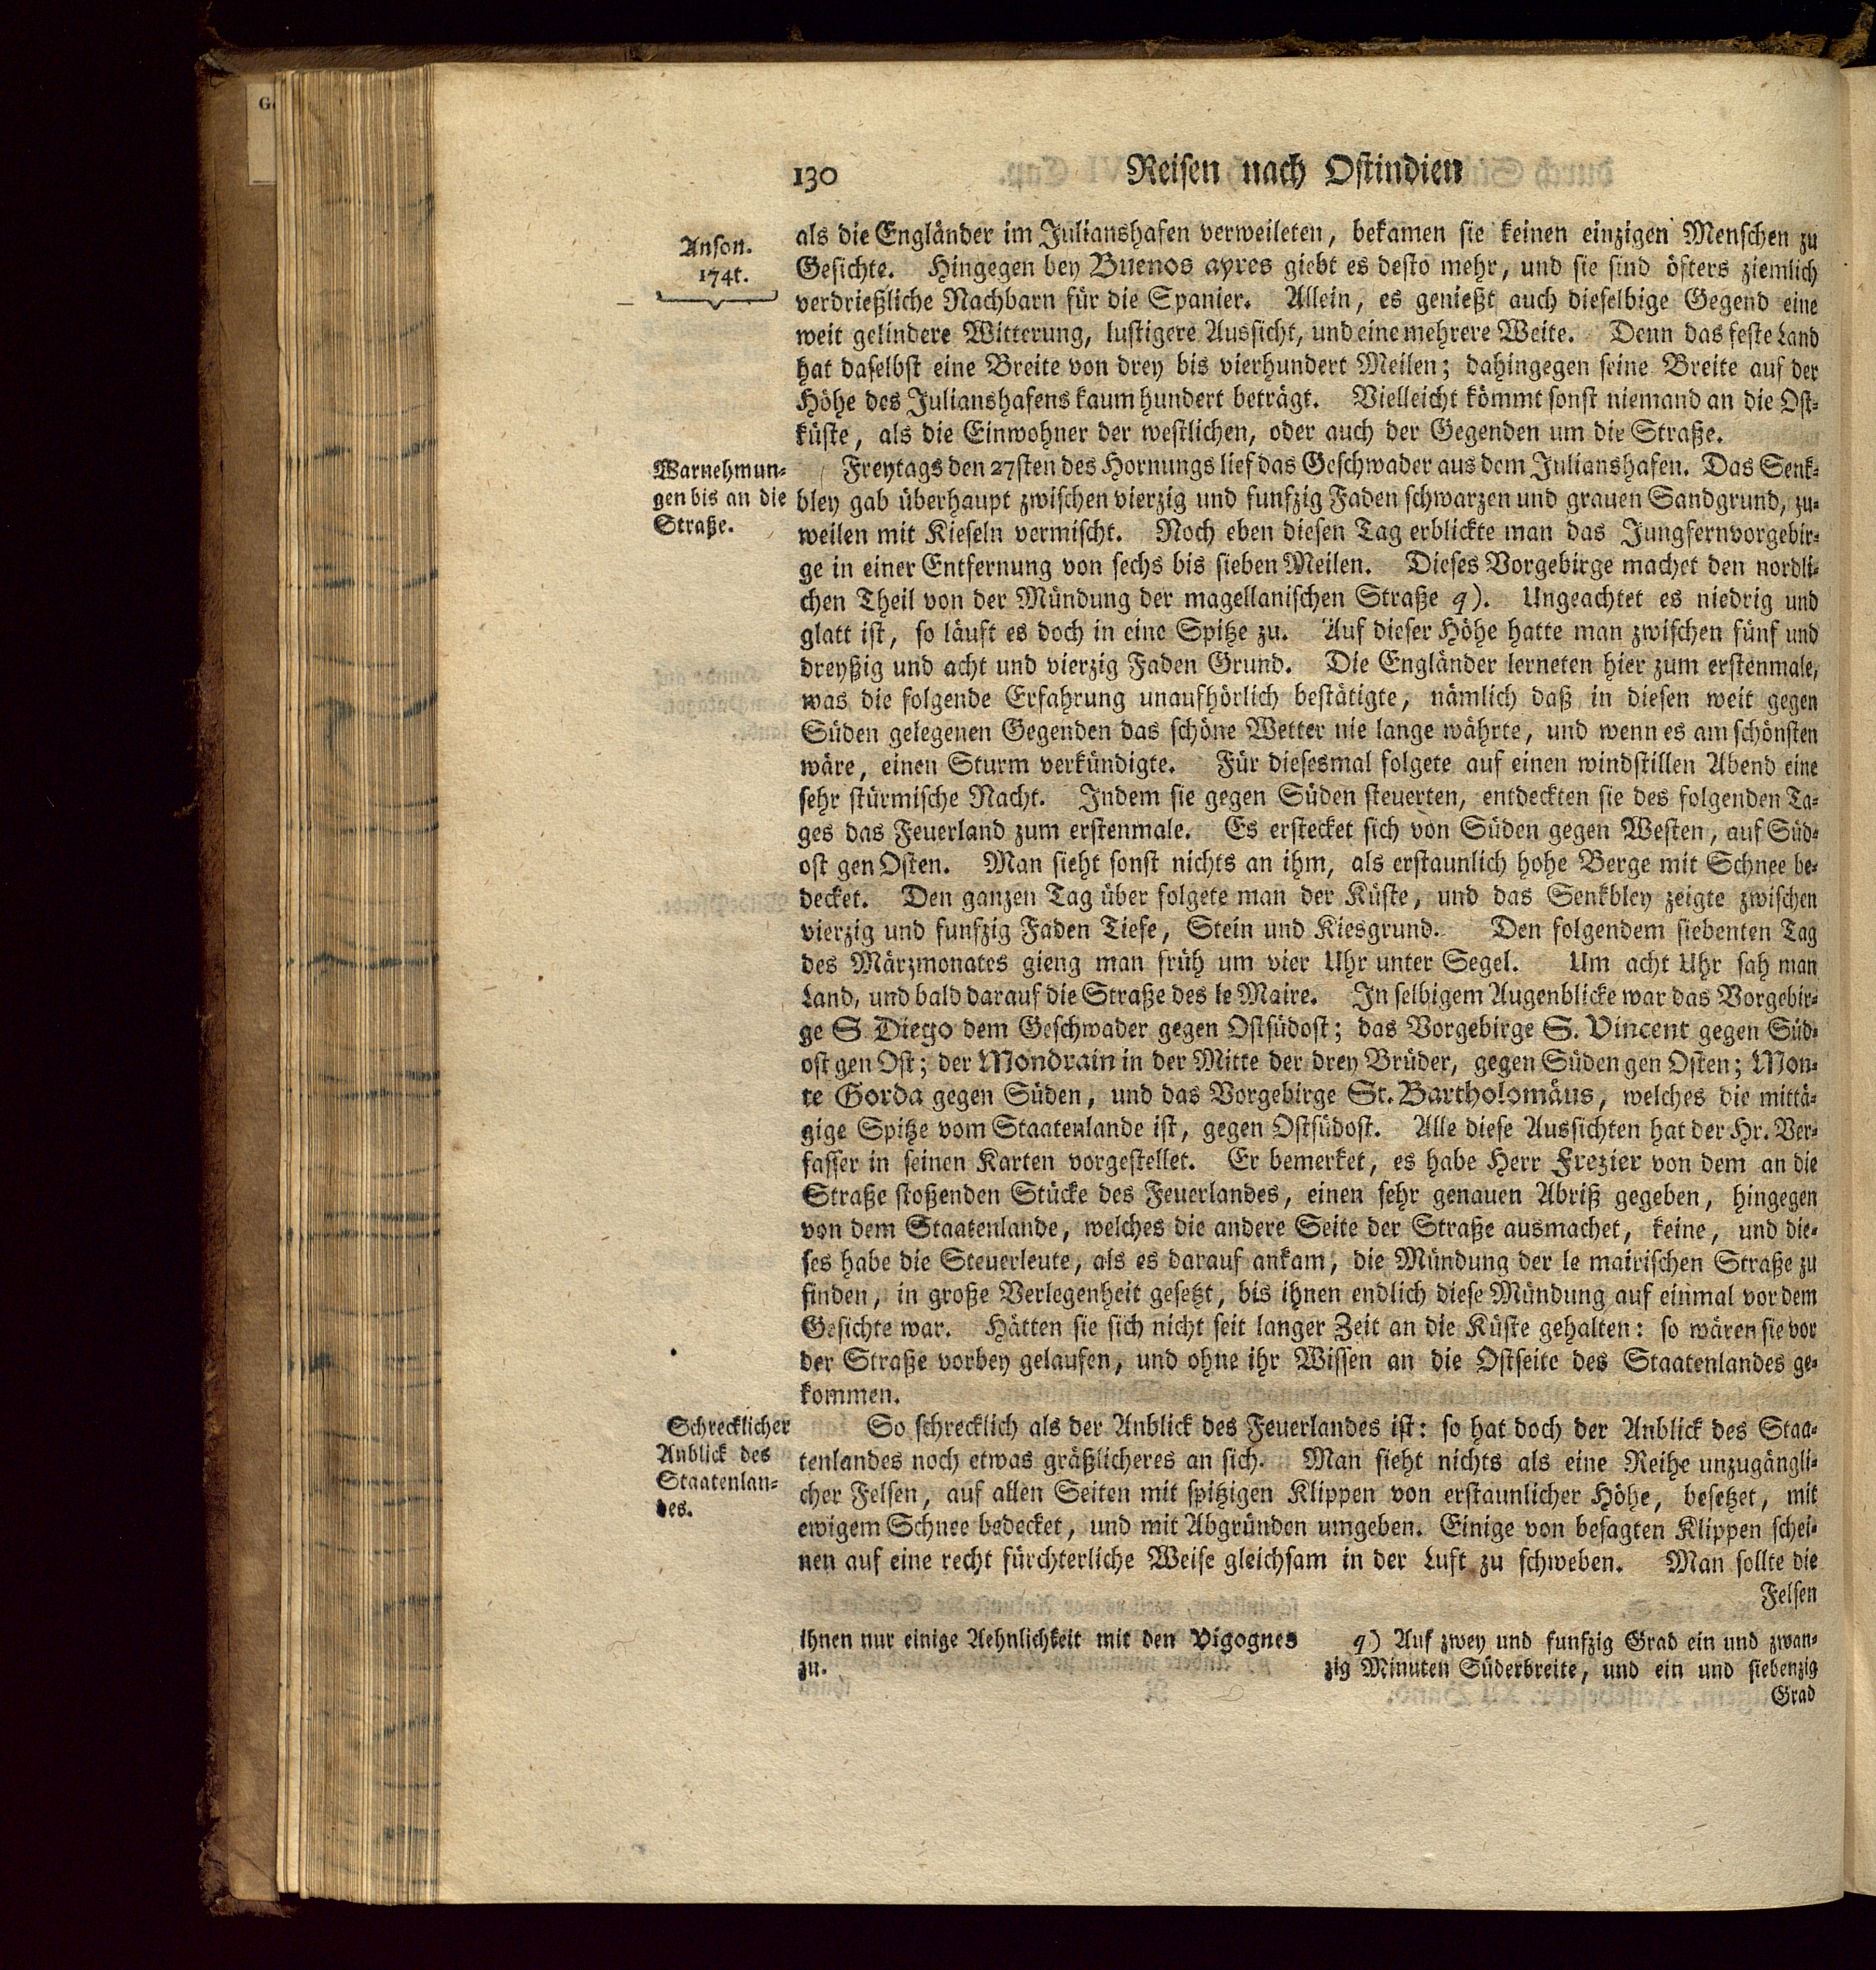 130 Reisen nach Ostindien
Anson.
1741.
als die Engländer im Julianshafen verweileten, bekamen sie keinen einzigen Menschen zu
Gesichte. Hingegen bey Buenos ayres giebt es desto mehr, und sie sind öfters ziemlich
verdrießliche Nachbarn für die Spanier. Allein, es genießt auch dieselbige Gegend eine
weit gelindere Witterung, lustigere Aussicht, und eine mehrere Weite. Denn das feste Land
hat daselbst eine Breite von drey bis vierhundert Meilen; dahingegen seine Breite auf der
Höhe des Julianshafens kaum hundert beträgt. Vielleicht kömmt sonst niemand an die Ost-
küste, als die Einwohner der westlichen, oder auch der Gegenden um die Straße.
Warnehmun-
gen bis an die
Straße.
Freytags den 27sten des Hornungs lief das Geschwader aus dem Julianshafen. Das Senk-
bley gab überhaupt zwischen vierzig und funfzig Faden schwarzen und grauen Sandgrund, zu-
weilen mit Kieseln vermischt. Noch eben diesen Tag erblickte man das Jungfernvorgebir-
ge in einer Entfernung von sechs bis sieben Meilen. Dieses Vorgebirge machet den nordli-
chen Theil von der Mündung der magellanischen Straße q). Ungeachtet es niedrig und
glatt ist, so läuft es doch in eine Spitze zu. Auf dieser Höhe hatte man zwischen fünf und
dreyßig und acht und vierzig Faden Grund. Die Engländer lerneten hier zum erstenmale,
was die folgende Erfahrung unaufhörlich bestätigte, nämlich daß in diesen weit gegen
Süden gelegenen Gegenden das schöne Wetter nie lange währte, und wenn es am schönsten
wäre, einen Sturm verkündigte. Für diesesmal folgete auf einen windstillen Abend eine
sehr stürmische Nacht. Indem sie gegen Süden steuerten, entdeckten sie des folgenden Ta-
ges das Feuerland zum erstenmale. Es erstecket sich von Süden gegen Westen, auf Süd-
ost gen Osten. Man sieht sonst nichts an ihm, als erstaunlich hohe Berge mit Schnee be-
decket. Den ganzen Tag über folgete man der Küste, und das Senkbley zeigte zwischen
vierzig und funfzig Faden Tiefe, Stein und Kiesgrund. Den folgendem siebenten Tag
des Märzmonates gieng man früh um vier Uhr unter Segel. Um acht Uhr sah man
Land, und bald darauf die Straße des le Maire. In selbigem Augenblicke war das Vorgebir-
ge S Diego dem Geschwader gegen Ostsüdost; das Vorgebirge S. Vincent gegen Süd-
ost gen Ost; der Mondrain in der Mitte der drey Brüder, gegen Süden gen Osten; Mon-
te Gorda gegen Süden, und das Vorgebirge St. Bartholomäus, welches die mittä-
gige Spitze vom Staatenlande ist, gegen Ostsüdost. Alle diese Aussichten hat der Hr. Ver-
fasser in seinen Karten vorgestellet. Er bemerket, es habe Herr Frezier von dem an die
Straße stoßenden Stücke des Feuerlandes, einen sehr genauen Abriß gegeben, hingegen
von dem Staatenlande, welches die andere Seite der Straße ausmachet, keine, und die-
ses habe die Steuerleute, als es darauf ankam, die Mündung der le mairischen Straße zu
finden, in große Verlegenheit gesetzt, bis ihnen endlich diese Mündung auf einmal vor dem
Gesichte war. Hätten sie sich nicht seit langer Zeit an die Küste gehalten: so wären sie vor
der Straße vorbey gelaufen, und ohne ihr Wissen an die Ostseite des Staatenlandes ge-
kommen.
Schrecklicher
Anblick des
Staatenlan-
des.
So schrecklich als der Anblick des Feuerlandes ist: so hat doch der Anblick des Staa-
tenlandes noch etwas gräßlicheres an sich. Man sieht nichts als eine Reihe unzugängli-
cher Felsen, auf allen Seiten mit spitzigen Klippen von erstaunlicher Höhe, besetzet, mit
ewigem Schnee bedecket, und mit Abgründen umgeben. Einige von besagten Klippen schei-
nen auf eine recht fürchterliche Weise gleichsam in der Luft zu schweben. Man sollte die
Felsen
ihnen nur einige Aehnlichkeit mit den Vigognes
zu.
q) Auf zwey und funfzig Grad ein und zwan-
zig Minuten Süderbreite, und ein und siebenzig
Grad